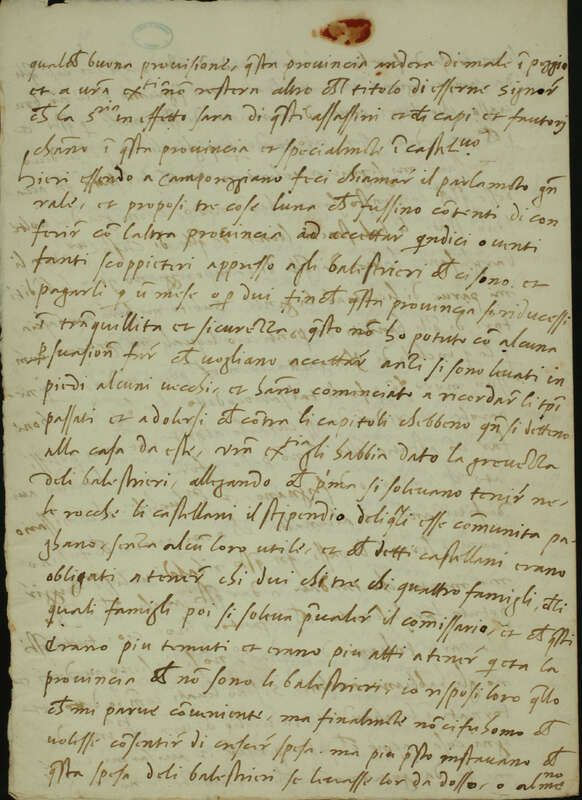 qualche buona provisione, q̄sta provincia andera di male ī peggio
et a vr̄a ex.tia nō restera altro ch'l titolo di esserne signor̄
ch̄ la s.ria in effetto sara di q̄sti assassini et d̄li capi et fautori
c̄hāno ī q̄sta provincia et specialmēte ī castel.vo
ieri essendo a camporggiano feci chiamar̄ il parlamēto gn̄
rale, et proposi tre cose luna ch̄ fussino cōtenti di con
ferir̄ cō l'altra provincia ad accettar̄ q̄ndici o venti
fanti scoppietieri appresso agli balestrieri ch̄ ci sono et
pagarli p̄ ū mese o p̄ dui finch̄ q̄sta provincia si riducessi
ī trāquillita et sicurezza q̄sto nō ho potuto cō alcuna
p̄suasion̄ far̄ ch̄ vogliano accettar̄ anzi si sono levati in
piedi alcuni vecchi, et hāno cominciato a ricordar̄ li tp̄i
passati et a dolersi ch̄ cōtra li capitoli chebbeno qn̄ si detteno
alla casa da este, vr̄a ex.tia gli habbia dato la grevezza
deli balestrieri, allegando ch̄ p̄ma si solevano tenir̄ ne
le rocche li castellani il stipendio deli q̄li esse comunita pa
ghano, senza alcū loro utile, et ch̄ detti castellani erano
obligati a tener̄ chi dui chi tre chi quattro famigli, d̄li
quali famigli poi si soleva p̄valer̄ il comissario, et ch̄ q̄sti
erano piu temuti et erano piu atti a tener̄ q̄eta la
provincia ch̄ nō sono li balestrieri, io risposi loro q̄llo
ch̄ mi parve cōveniente, ma finalmēte nō ci fu homo ch̄
volesse cōsentir̄ di crescer̄ spesa ma piu p̄sto instavano ch̄
q̄sta spesa deli balestrieri se levasse lor da dosso, o almeno